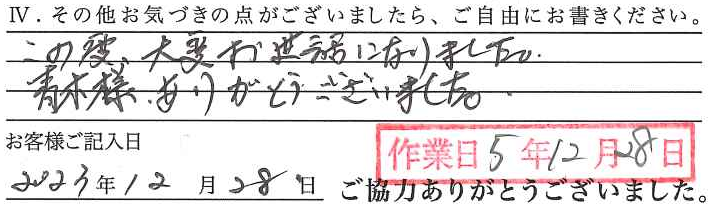 Ⅳ．その他お気づきの点がございましたら、ご自由にお書きください。
この度、大変お世話になりました。
青木様、ありがとうございました。
お客様ご記入日
作業日5年12月28日
2023年12月28日 ご協力ありがとうございました。